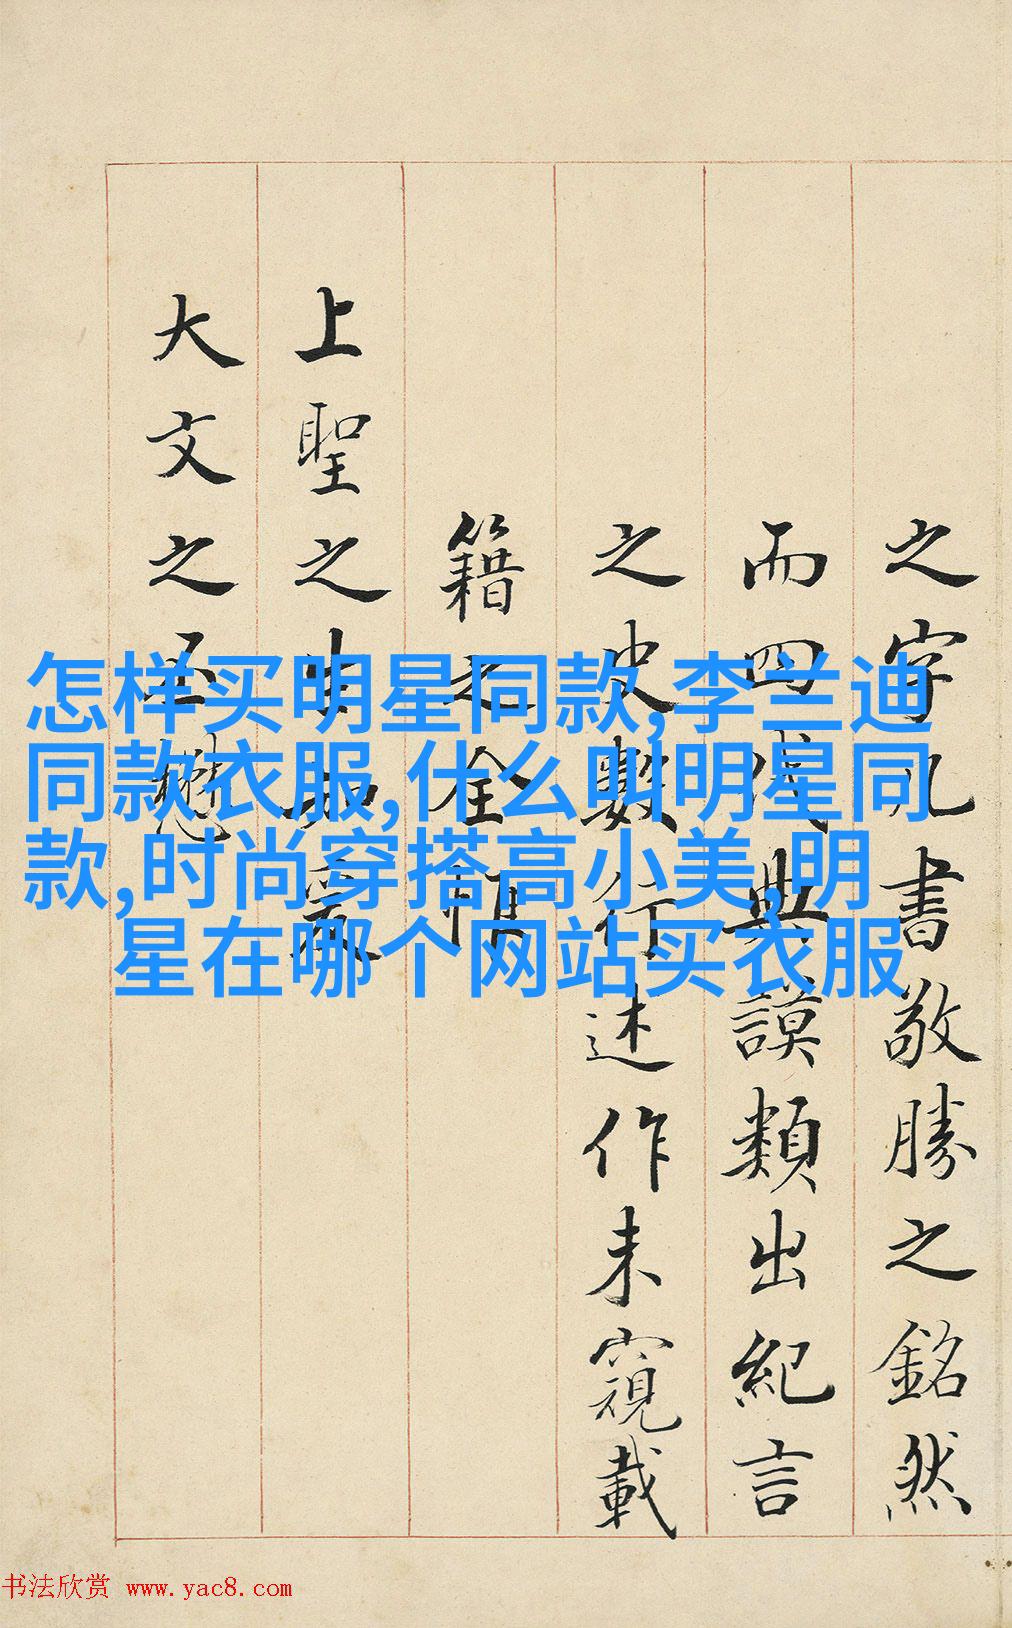 怎样买明星同款,李兰迪
同款衣服,什么叫明星同
款,时尚穿搭高小美,明
星在哪个网站买衣服
之字几書敬勝之銘然
而四代典謨類出紀言
之史數行述作未窺載
籍之全
上聖之
大文之丕懋
书法欣赏 www.yac8.com